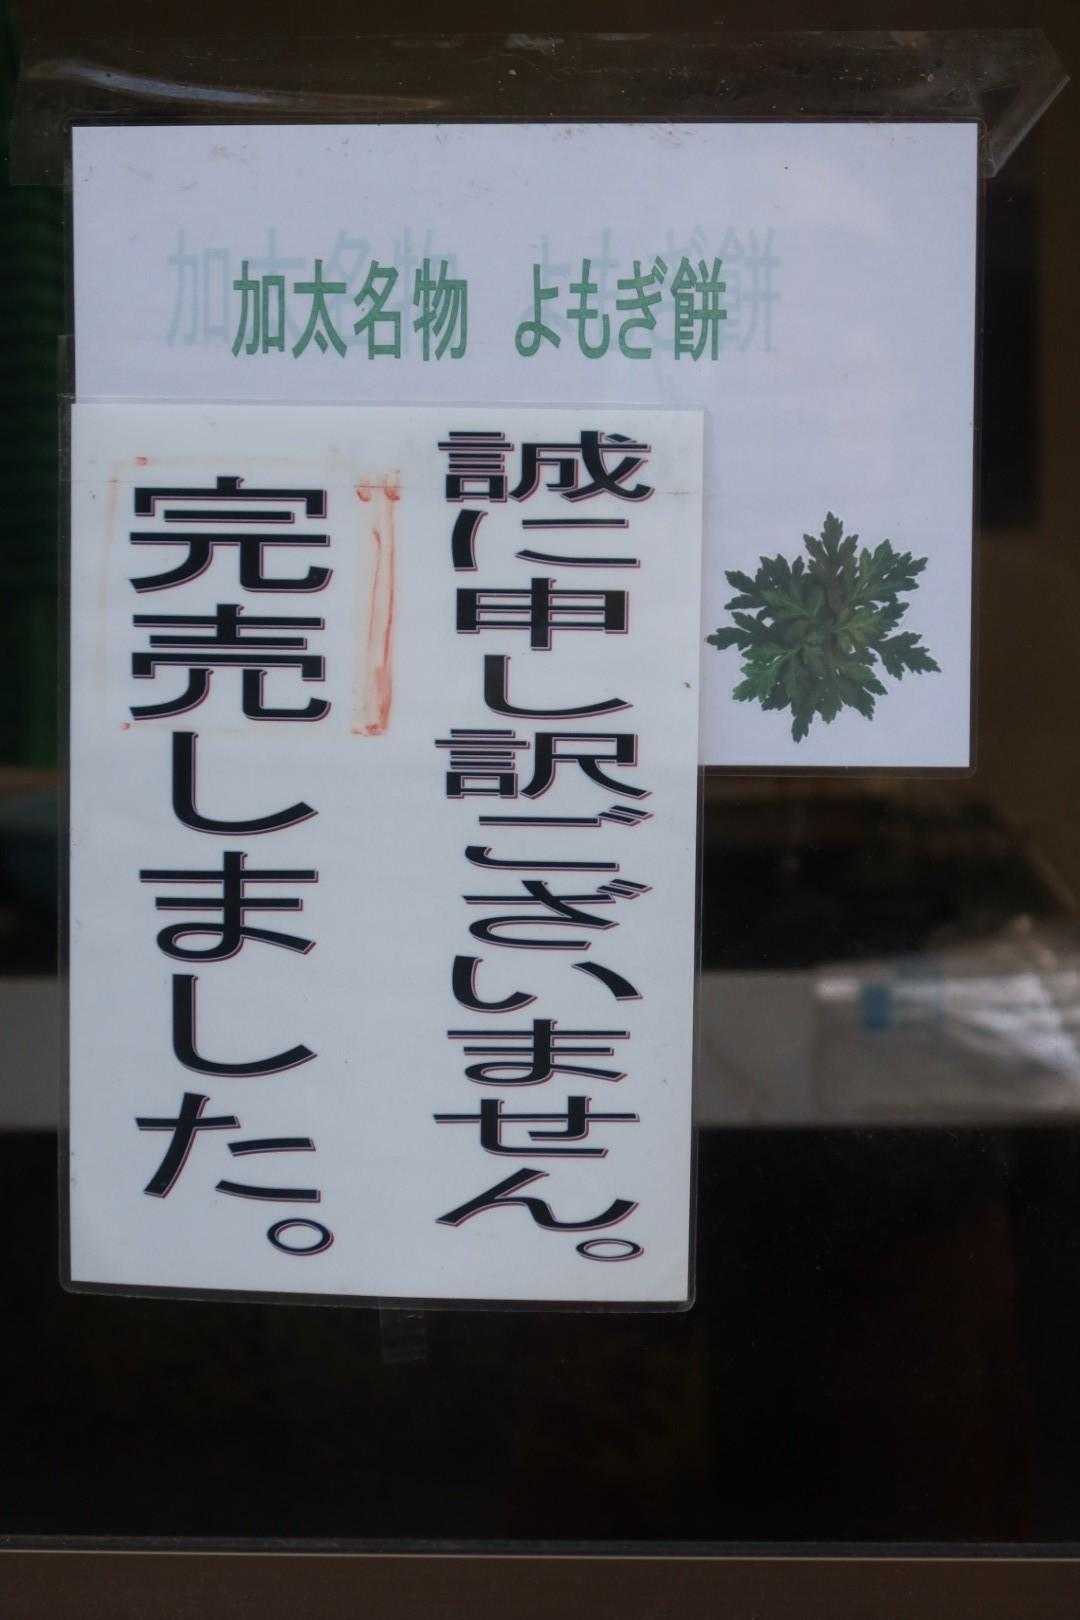 加太名物 よもぎ餅
誠に申し訳ございません。
完売しました。